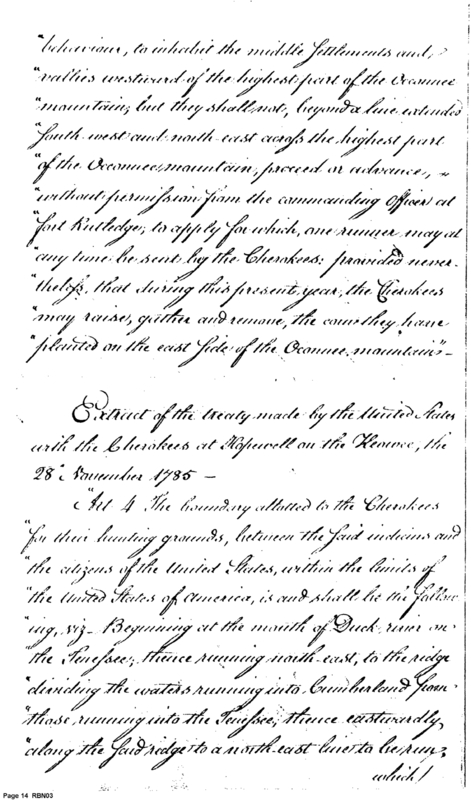 "behaviour, to inhabit the middle settlements and,
"vallies westward of the highest part of the Occonnee
"mountain; but they shall not, beyond a line extended
"south west and north-east across the highest part
"of the Occonnee mountain, proceed or advance,
"without permission from the commanding Officer at
"fort Rutledge; to apply for which, one runner may at
"any time be sent by the Cherokees: provided never-
"theless, that during this present year, the Cherokees
"may raise, gather and remove, the corn they have
"planted on the east side of the Oconnee mountain"-
Extract of the treaty made by the United States
with the Cherokees at Hopewell on the Keowee, the
28th November 1785 -
"Art 4 The boundary allotted to the Cherokees
"for their hunting grounds, between the said indians and
"the citizens of the United States, within the limits of
"the United States of America, is and shall be the follow-
"ing, viz- Beginning at the mouth of Duck river on
"the Tenessee; thence running north-east, to the ridge
"dividing the waters running into Cumberland from
"those running into the Tenessee; thence eastwardly
"along the said ridge to a north east line to be run,
which
Page 14 RBN03